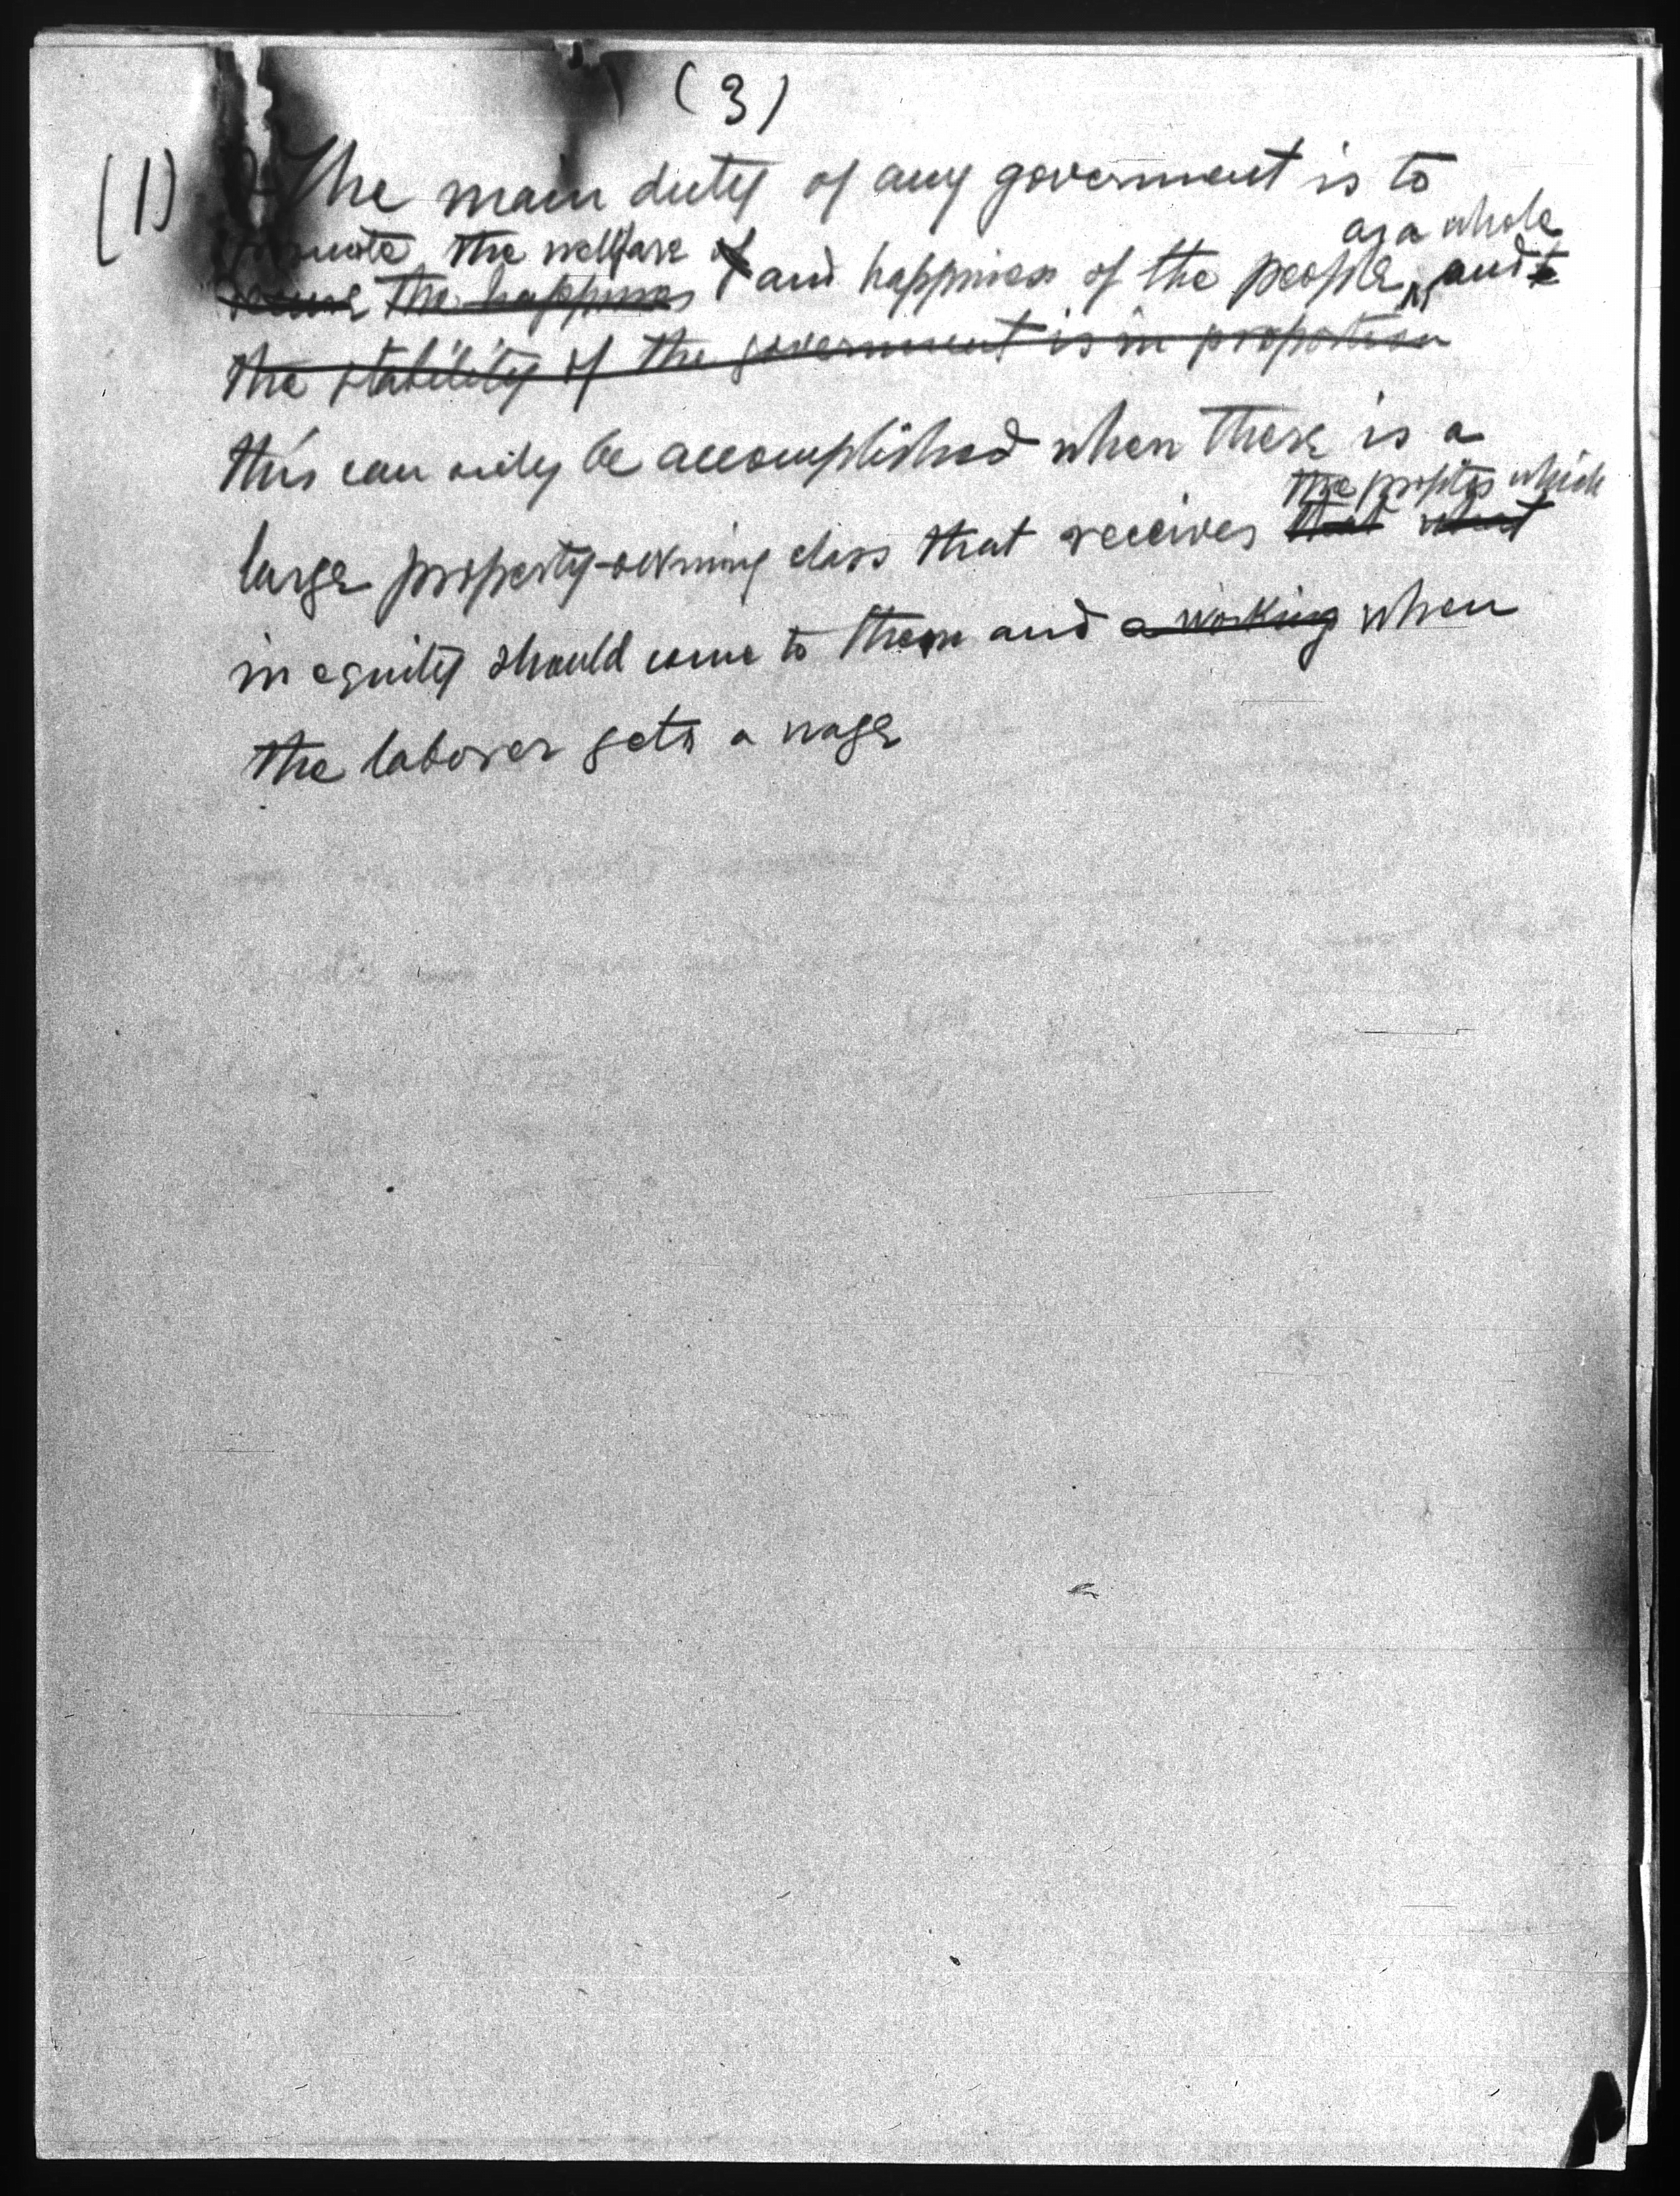 (3)
(1) The main duty of any government is to
as a whole
promote the welfare of
secure the happiness and happiness of the people, and t
the stability of the government is in proportion
this can only be accomplished when there is a
the profits which
large property-owning class that receives that what
in equity should come to them and a working when
the laborer gets a wage